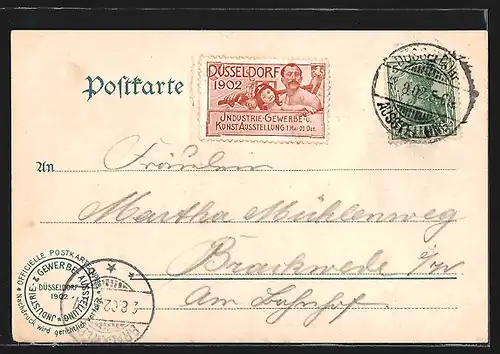 Postkarte
DÜSSELDORF
1902
INDUSTRIE-GEWERBE-U.
KUNST AUSSTELLUNG 1 Mai-20 Okt.
DÜSSELDORF
AUSSTELLUNG
An Fräulein
Martha Mühlenweg
Brackwede i/W
Am Bahnhof.
OFFICIELLE POSTKARTE
INDUSTRIE- & GEWERBE AUSSTELLUNG
DÜSSELDORF
1902
Nachdruck wird gerichtlich verfolgt